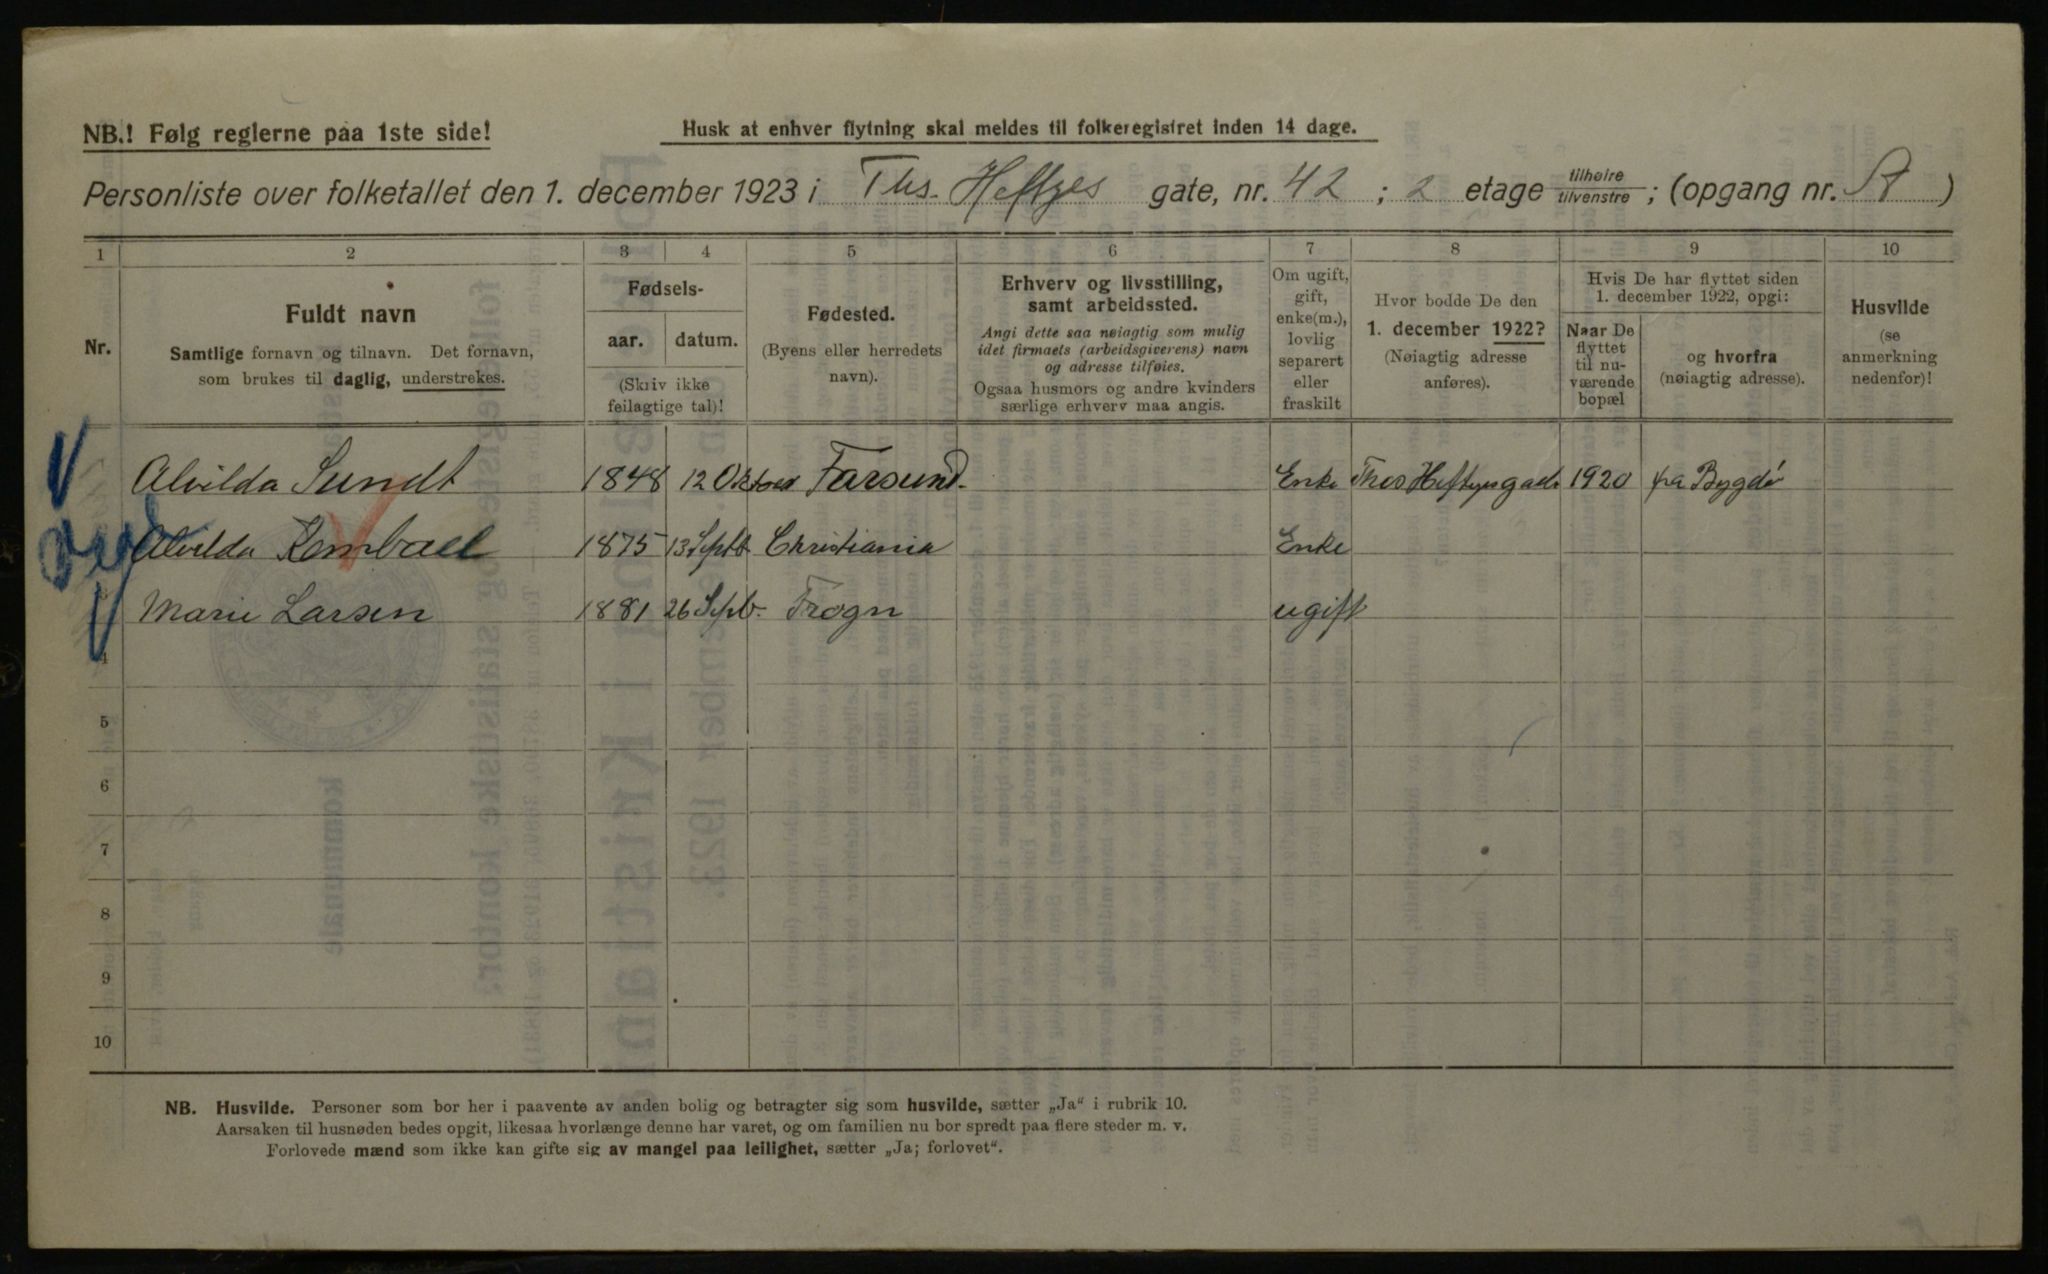 NB.! Følg reglerne paa 1ste side!
Husk at enhver flytning skal meldes til folkeregistret inden 14 dage.
Personliste over folketallet den 1. december 1923 i Ths. Heftyes gate, nr. 42 ; 2 etage tilhøire/tilvenstre ; (opgang nr. )
1 2 3 4 5 6 7 8 9 10
Nr.
Fuldt navn
Samtlige fornavn og tilnavn. Det fornavn,
som brukes til daglig, understrekes.
Fødsels-
aar. datum.
(Skriv ikke
feilagtige tal)!
Fødested.
(Byens eller herredets
navn).
Erhverv og livsstilling,
samt arbeidssted.
Angi dette saa nøiagtig som mulig
idet firmaets (arbeidsgiverens) navn
og adresse tilføies.
Ogsaa husmors og andre kvinders
særlige erhverv maa angis.
Om ugift,
gift,
enke(m.),
lovlig
separert
eller
fraskilt
Hvor bodde De den
1. december 1922?
(Nøiagtig adresse
anføres).
Hvis De har flyttet siden
1. december 1922, opgi:
Naar De
flyttet
til nu-
værende
bopæl
og hvorfra
(nøiagtig adresse).
Husvilde
(se
anmerkning
nedenfor)!
Alvilda Sundt 1848 12 Oktober Farsund. Enke Thos Heftyesgade 1920 fra Bygdø
Alvilda 1875 13 Septb Christiania Enke
Marie Larsen 1881 26 Septb. Frogn ugift
4
5
6
7
8
9
10
NB. Husvilde. Personer som bor her i paavente av anden bolig og betragter sig som husvilde, sætter „Ja“ i rubrik 10.
Aarsaken til husnøden bedes opgit, likesaa hvorlænge denne har varet, og om familien nu bor spredt paa flere steder m. v.
Forlovede mænd som ikke kan gifte sig av mangel paa leilighet, sætter „Ja; forlovet“.